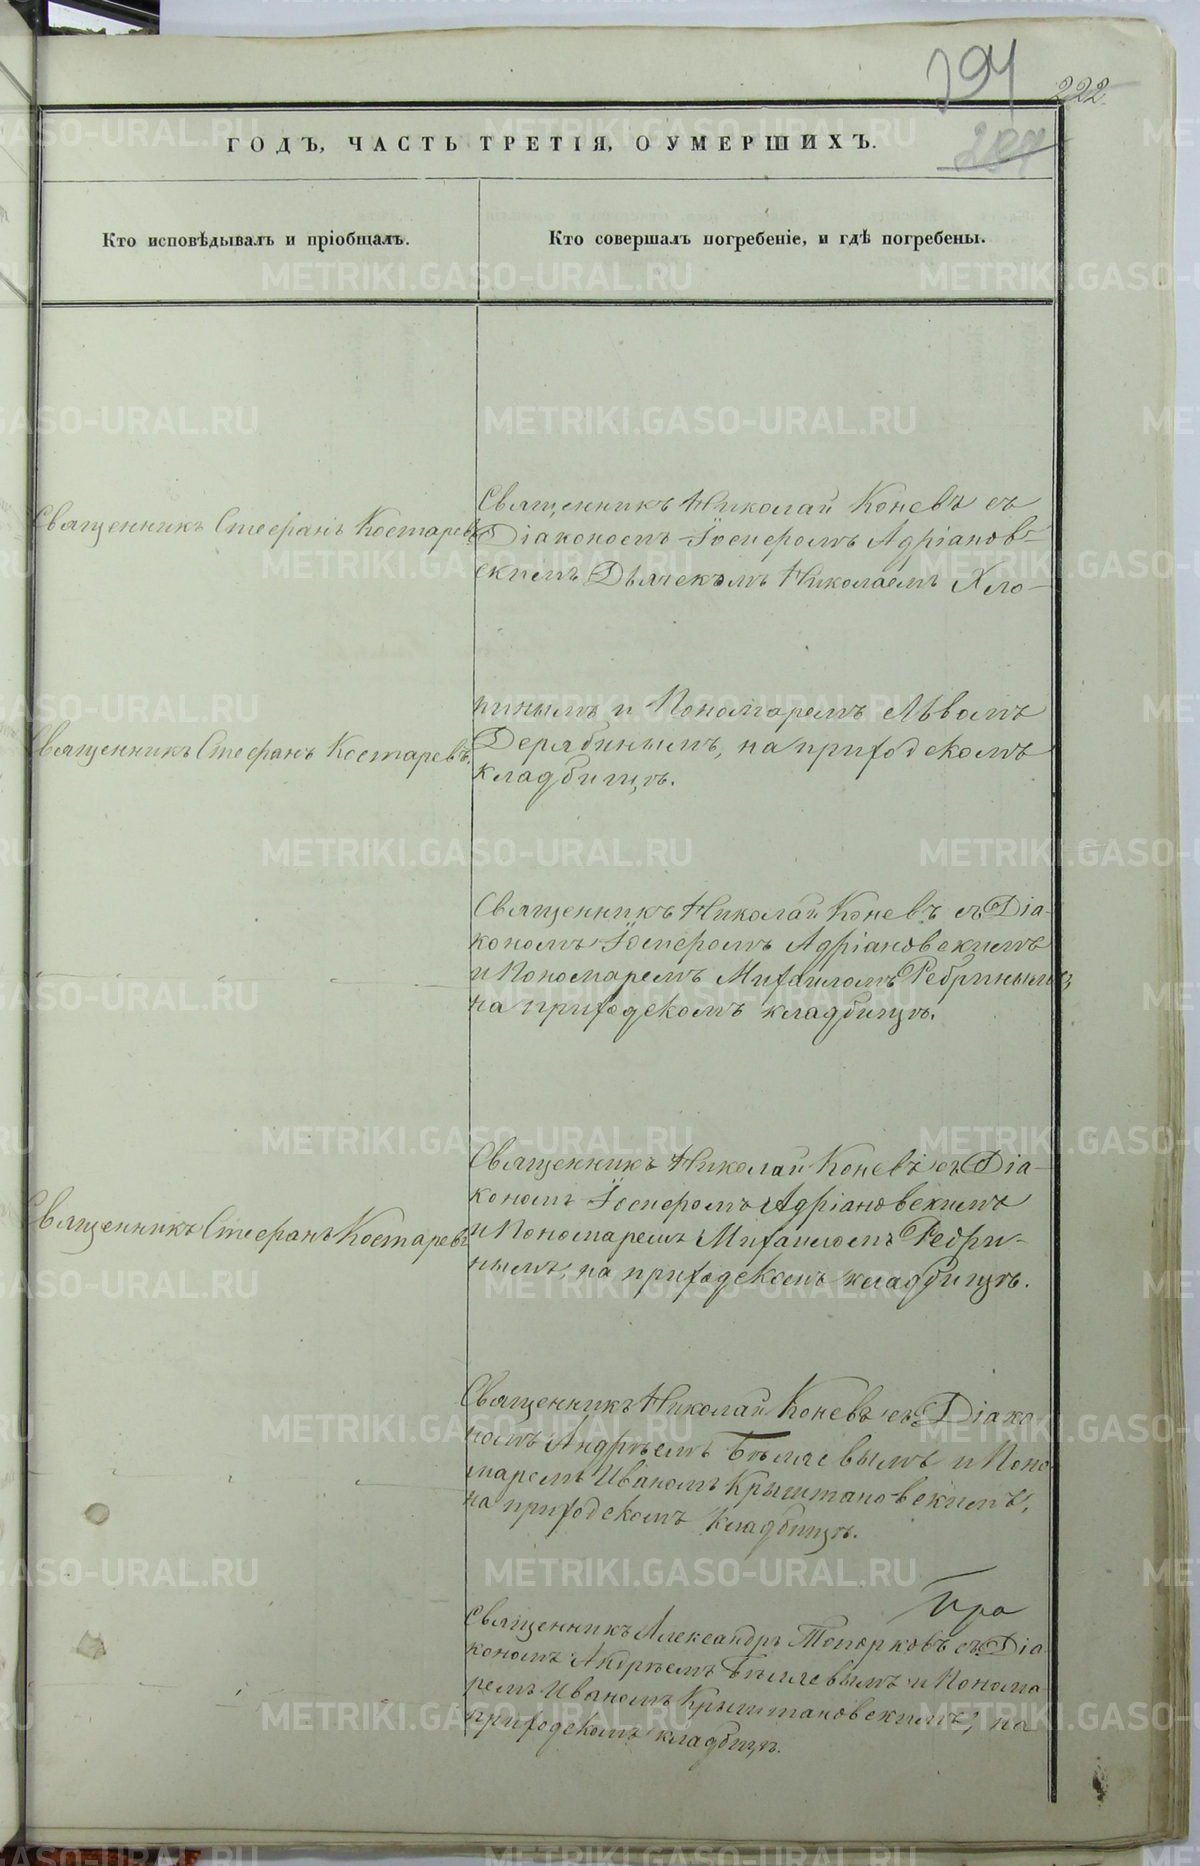 294
222.
297
ГОДЪ, ЧАСТЬ ТРЕТІЯ, О УМЕРШИХЪ.
Кто исповѣдывалъ и пріобщалъ.
Кто совершалъ погребеніе, и гдѣ погребены.
Священникъ Стефанъ Костаревъ
Священникъ Николай Коневъ съ
Діакономъ Іосифомъ Адріанов-
скимъ, Дьячекомъ Николаемъ Хло-
Священникъ Стефанъ Костаревъ,
пинымъ и Пономаремъ Львомъ
Дерябинымъ, на приходскомъ
кладбищѣ.
Священникъ Николай Коневъ съ Діа-
кономъ Іосифомъ Адріановскимъ
и Пономаремъ Михаиломъ Ребринымъ
на приходскомъ кладбищѣ.
Священникъ Стефанъ Костаревъ
Священникъ Николай Коневъ съ Діа-
кономъ Іосифомъ Адріановскимъ
и Пономаремъ Михаиломъ Ребри-
нымъ, на приходскомъ кладбищѣ.
Священникъ Николай Коневъ съ Діако
номъ Андреемъ Бѣляевымъ и Поно
маремъ Иваномъ Крыштановскимъ,
на приходскомъ кладбищѣ.
Пра
Священникъ Александръ Топорковъ съ Діа
кономъ Андреемъ Бѣляевымъ и Понома
ремъ Иваномъ Крыштановскимъ, на
приходскомъ кладбищѣ.
METRIKI.GASO-URAL.RU